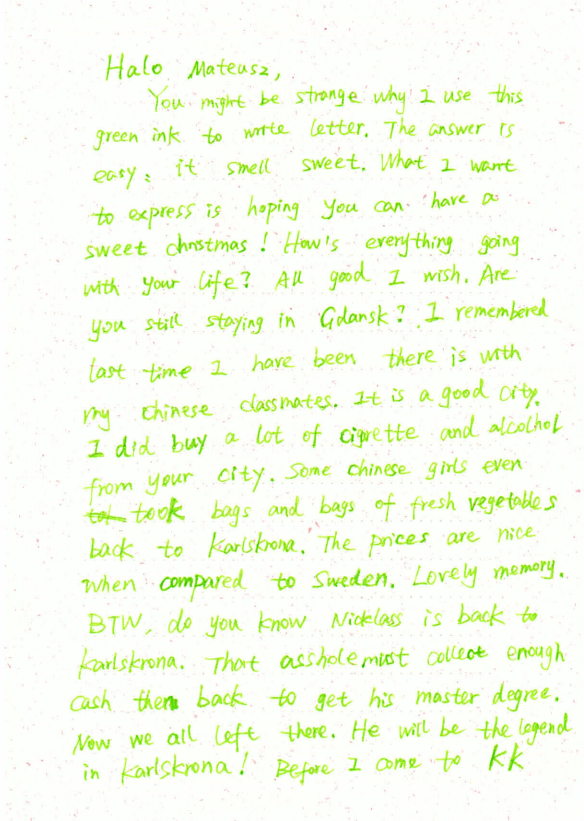 Halo Mateusz,
You might be strange why I use this
green ink to write letter. The answer is
easy: it smell sweet. What I want
to express is hoping you can have a
sweet christmas! How's everything going
with your life? All good I wish. Are
you still staying in Gdansk? I remembered
last time I have been there is with
my chinese classmates. It is a good city.
I did buy a lot of cigrette and alcolhol
from your city. Some chinese girls even
took bags and bags of fresh vegetables
back to Karlskrona. The prices are nice
when compared to Sweden. Lovely memory.
BTW, do you know Nicklass is back to
karlskrona. That asshole must collect enough
cash then back to get his master degree.
Now we all left there. He will be the legend
in karlskrona! Before I come to KK